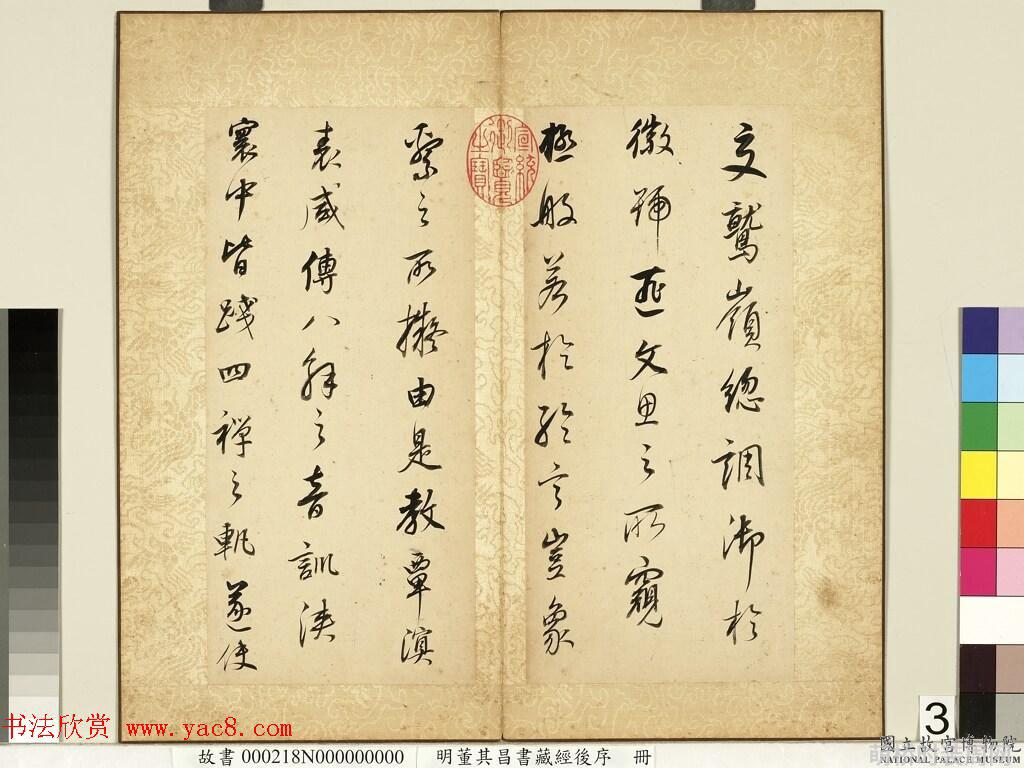 交鷲嶺總調御於
徽號匪文思之所窺
極般若於綸言豈象
繫之所擬由是教覃溟
表咸傳八解之音訓浹
寰中皆踐四禪之軌遂使
宣統御覽之寶
3
书法欣赏 www.yac8.com
故書 000218N000000000 明董其昌書藏經後序 冊
國立故宮博物院
NATIONAL PALACE MUSEUM